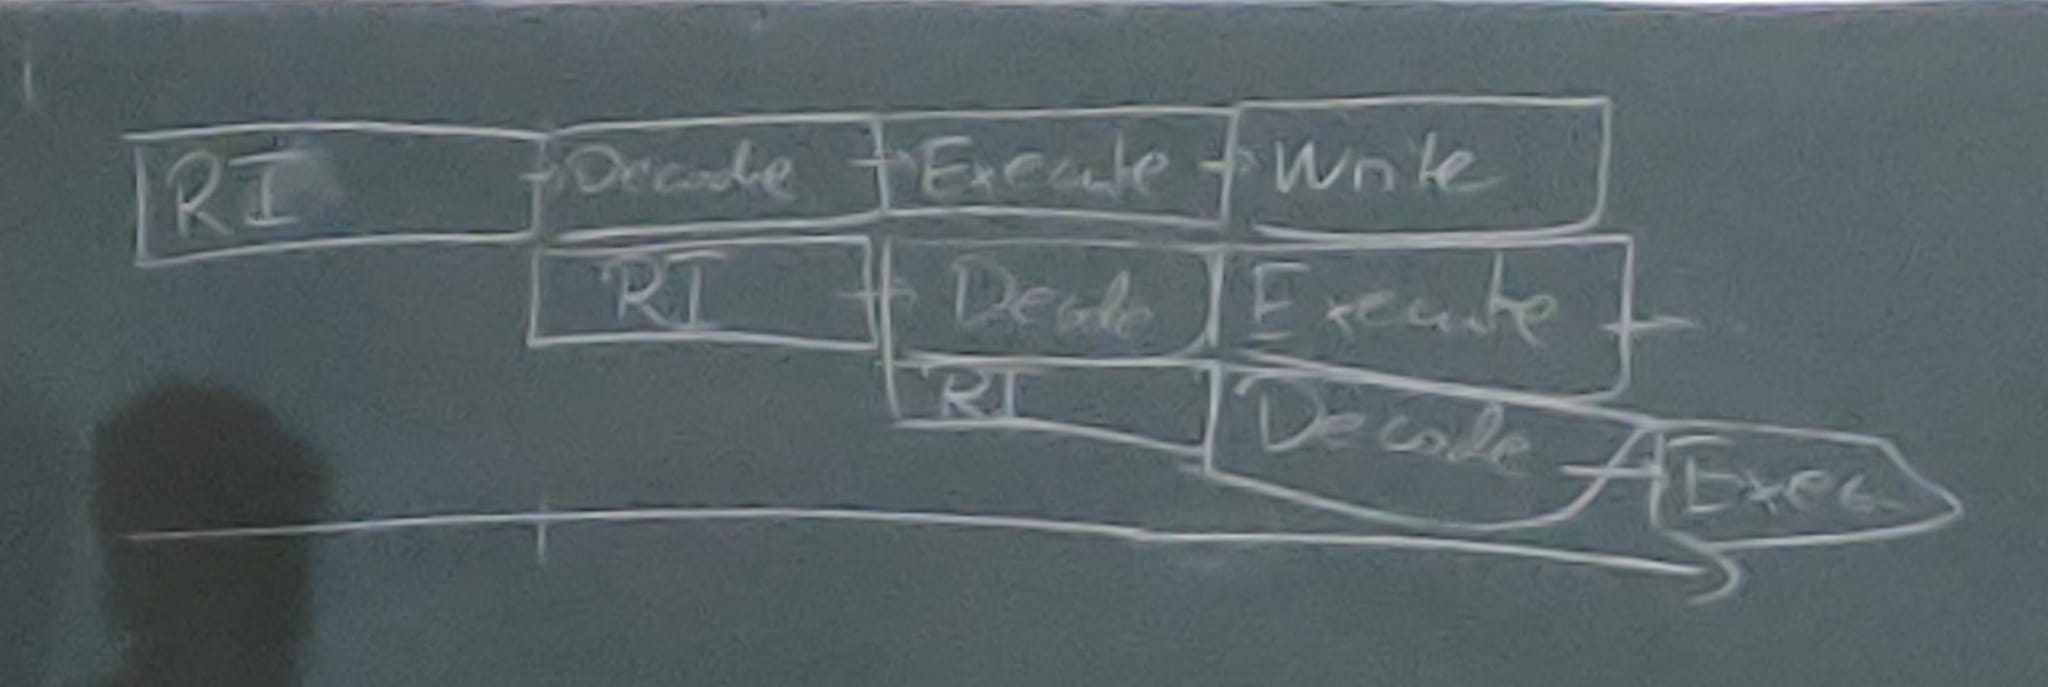 RI Decode Execute Write
RI Decode Execute
RI Decode Exec